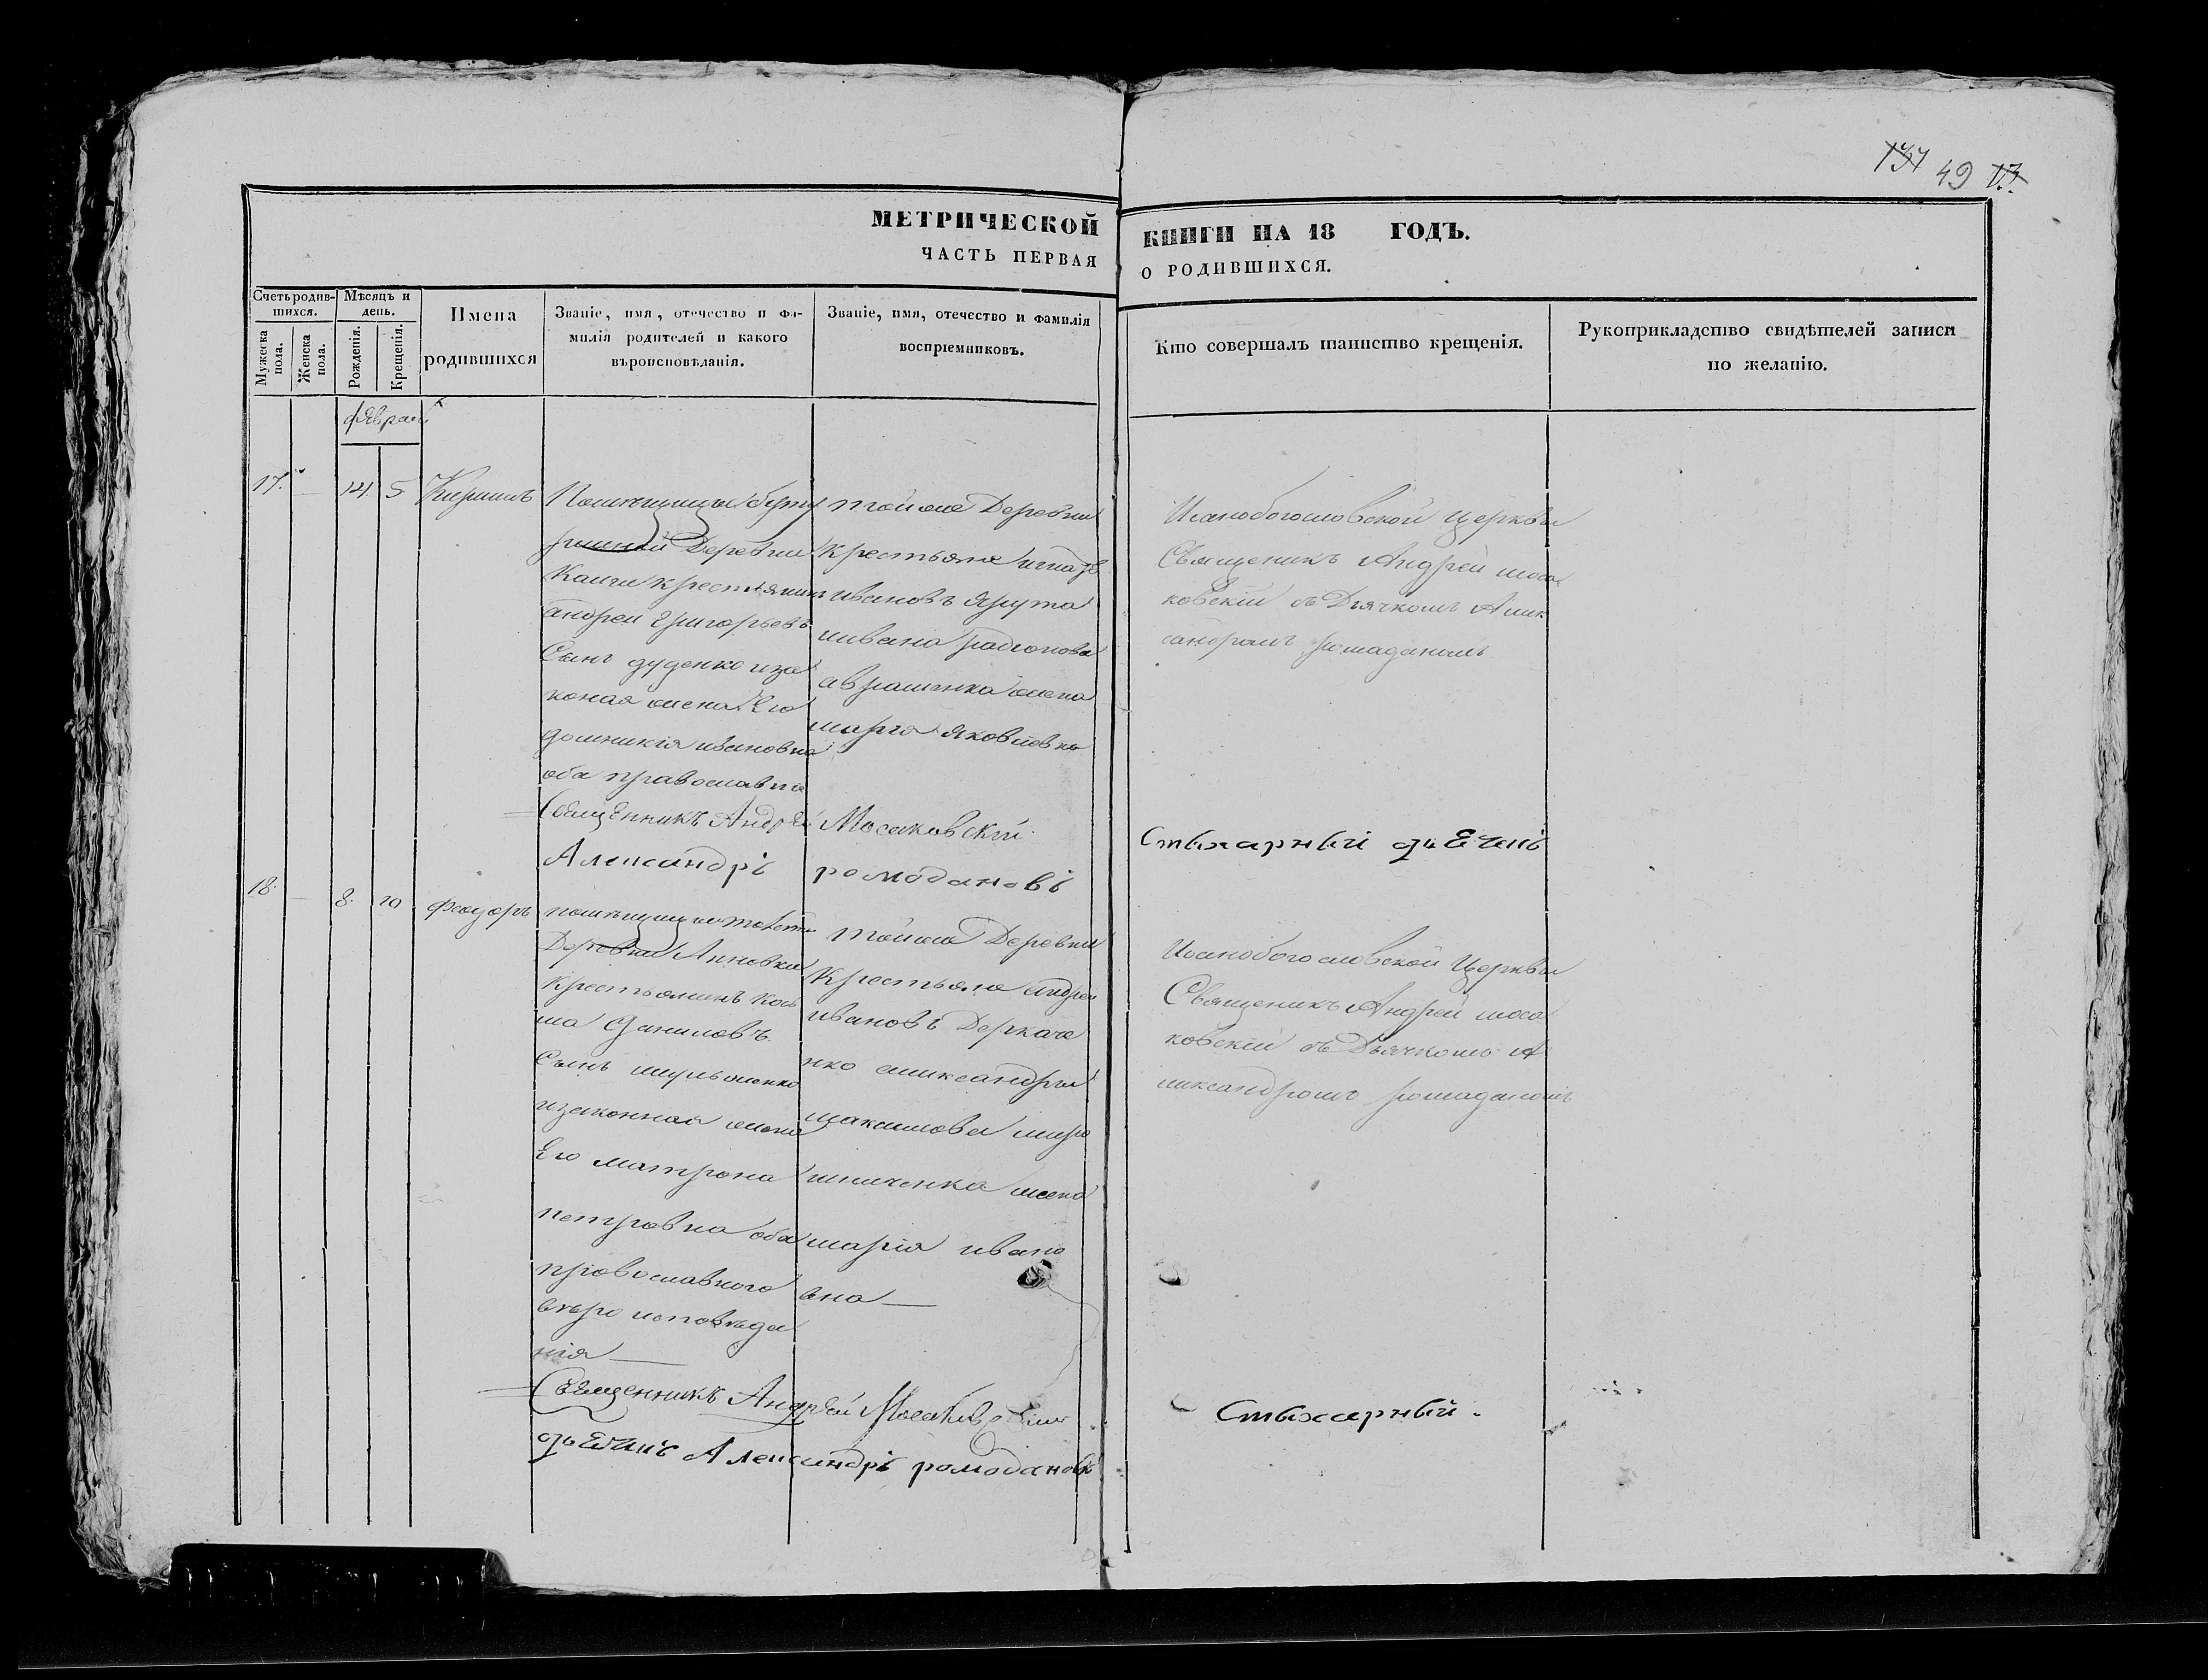 49
МЕТРИЧЕСКОЙ КНИГИ НА 18 ГОДЪ.
ЧАСТЬ ПЕРВАЯ О РОДИВШИХСЯ.
Счетъ родив-
шихся.
Мужеска пола.
Женска пола.
Мѣсяцъ и
день.
Рожденія.
Крещенія.
Имена
родившихся
Званіе, имя, отечество и фа-
милія родителей и какого
вѣроисповѣданія.
Званіе, имя, отечество и фамилія
воспріемниковъ.
Кто совершалъ таинство крещенія.
Рукоприкладство свидѣтелей записи
по желанію.
17.
5
Кирилъ
Помѣщицы
Деревни
крестьянинъ
андрей Григорьевъ
Сынъ дуденко и за
коная жена Его
домникія ивановна
оба православніе
тойже Деревни
крестьяне игнатъ
ивановъ Ярута
иивана радіонова
аврашенка жена
марѳа яковлевна
Иоанобогословской Церкви
Священикъ Андрей моса
ковскій съ Дьячкомъ Алек
сандромъ ромаданомъ
Священникъ Андрей Мосаковскій
Стихарный дьЕчик
Александръ ромодановъ
18.
8.
10
Феодоръ
Деревни Анновки
Крестьянинъ Косъ
ма Даниловъ
Сынъ
изаконная жена
Его матрона
петровна оба
провославного
вѣро исповѣда
нія
тойже Деревни
Крестьяне андрей
ивановъ Деркаче
нко аликсандры
максимова миро
шниченка жена
марія ивано
вна
Иоанобогословской Церкви
Священикъ Андрей моса
ковскій съ Дьячкомъ А
ликсандромъ ромаданомъ
Священникъ Андрей Мосаковскій
Стихарный
дьЕчикъ Александръ ромодановъ